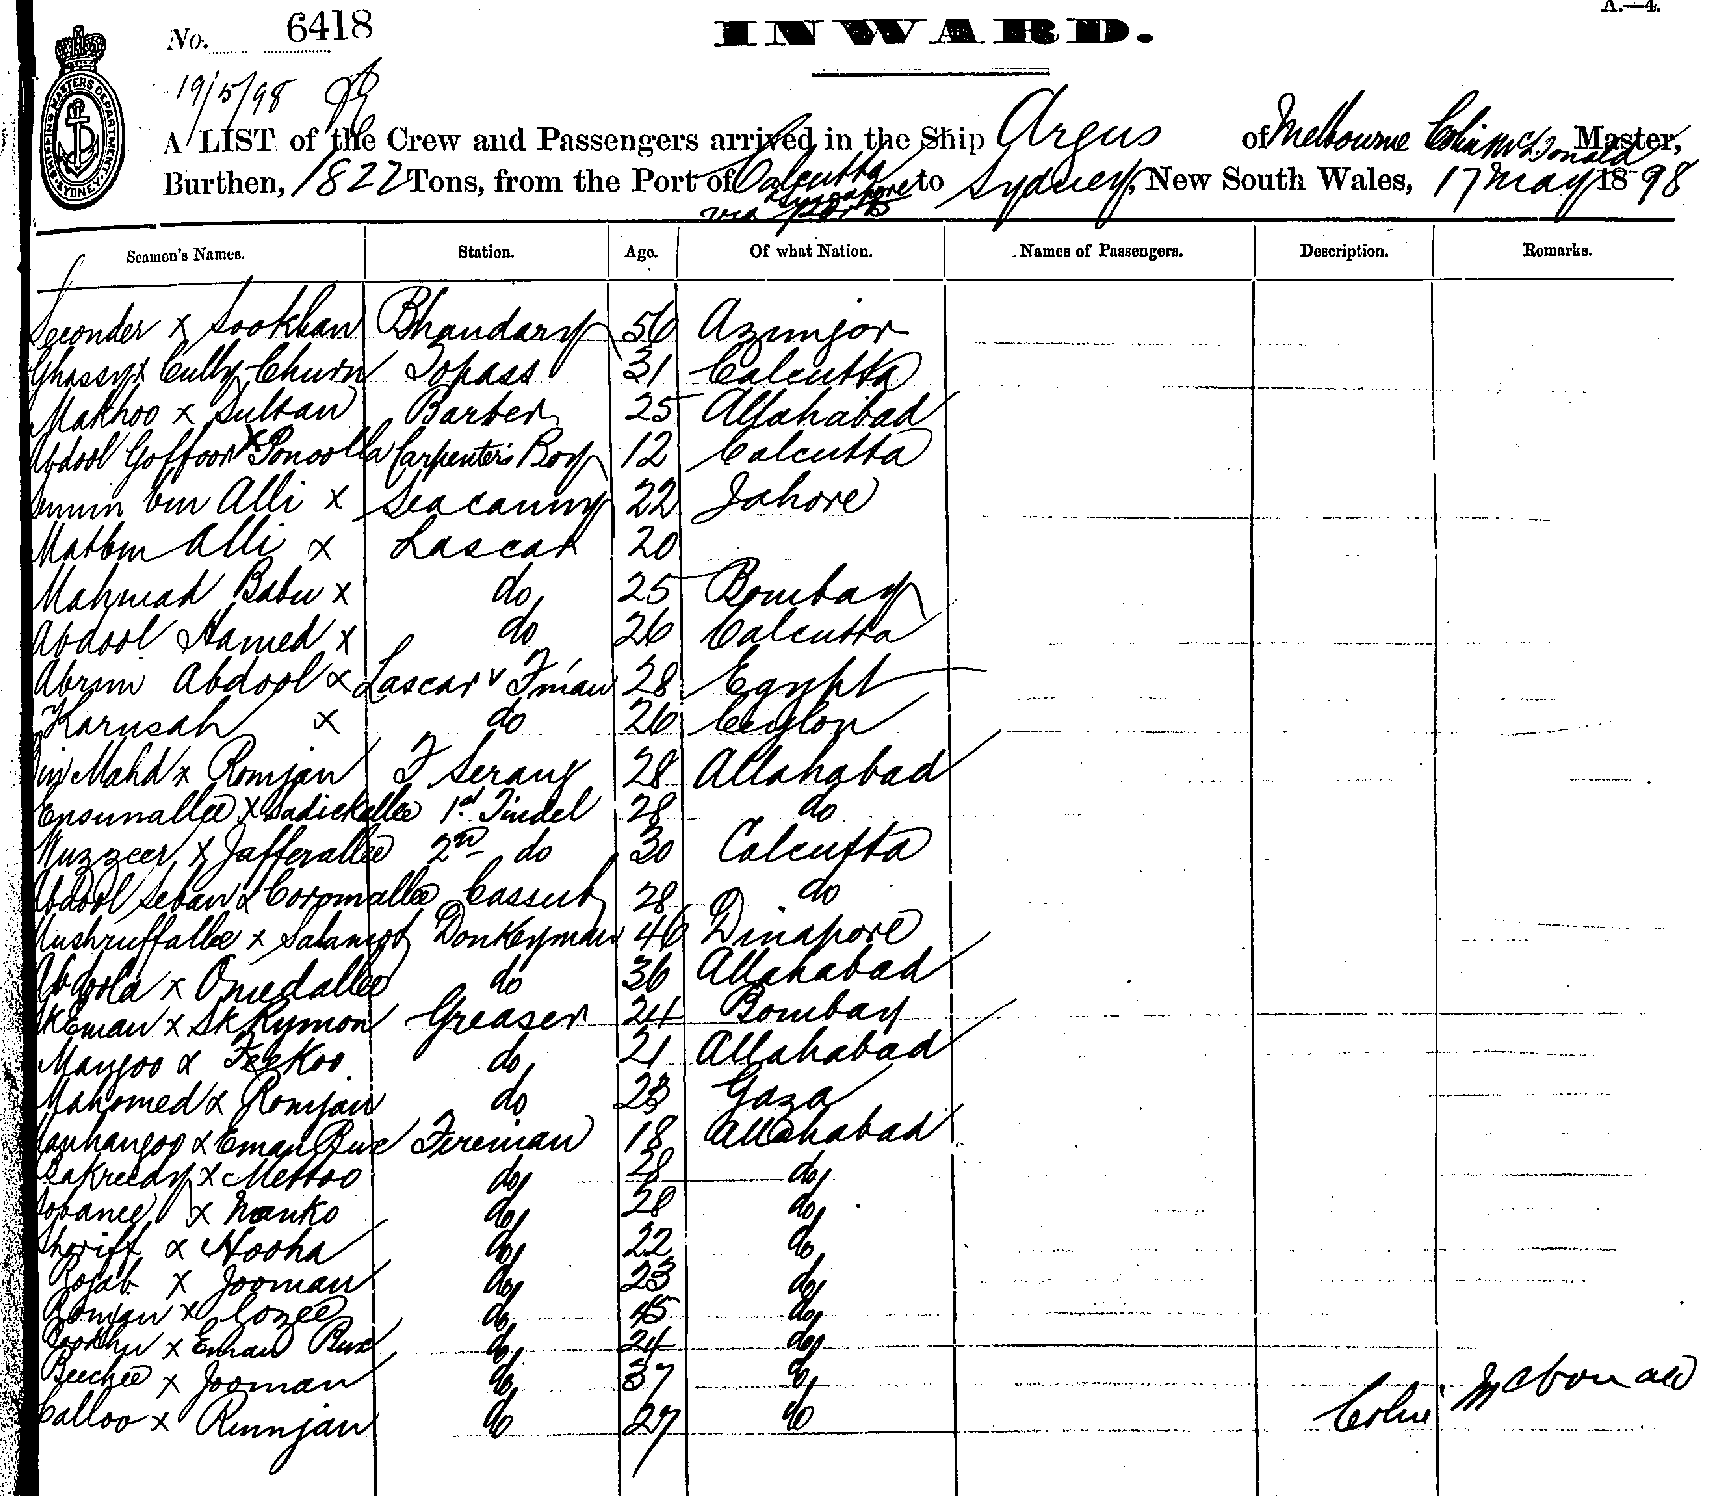 A.—4.
No. 6418
INWARD.
19/5/98
A LIST of the Crew and Passengers arrived in the Ship Argus of Melbourne Colin McDonald Master,
Burthen, 1822 Tons, from the Port of Calcutta via Singapore ports to Sydney, New South Wales, 17 May 1898
Seamen's Names. Station. Age. Of what Nation. Names of Passengers. Description. Remarks.
Seconder x Sookhan Bhandary 56 Azimjor
Ghassy x Cully Churn Topass 31 Calcutta
Makhoo x Sultan Barber 25 Allahabad
Abdool Goffoor x Ponoolla Carpenter's Boy 12 Calcutta
bin Alli x Seacunny 22 Johore
Matbin Alli x Lascar 20
Mahmad Babu x do 25 Bombay
Abdool Hamed x do 26 Calcutta
Abrim Abdool x Lascar F'man 28 Egypt
Karusah x do 26 Ceylon
Mahd x Romjan F Serang 28 Allahabad
Ensunallee x Sadickallee 1st Tindel 28 do
Nuzzeer x Jafferallee 2nd do 30 Calcutta
Abdool Seban x Coromallee Cassub 28 do
Mushruffallee x Salamot Donkeyman 46 Dinapore
Abdoola x Omedallee do 36 Allahabad
Sk Eman x Sk Rymon Greaser 24 Bombay
Mangoo x Feekoo do 21 Allahabad
Mahomed x Romjan do 23 Gaza
x Eman Bux Fireman 18 Allahabad
Bakreedy x Mettoo do 28 do
Sobanee x Nanko do 28 do
Sheriff x Nooha do 22 do
Rojab x Jooman do 23 do
Romjan x Cozee do 45 do
Bookhu x Eman Bux do 24 do
Beechee x Jooman do 37 do
Calloo x Rumjan do 27 do
Colin McDonald